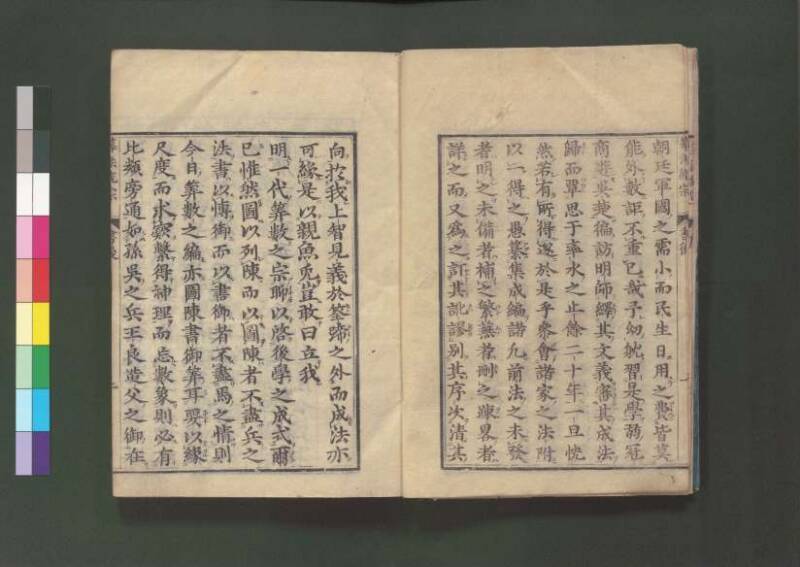 朝廷軍國之需小而民生日用之費皆莫
能外數詎不重已哉予幼躭習是學弱冠
商遊吳楚徧訪明師繹其文義審其成法
歸而覃思于率水之上餘二十年一旦恍
然若有所得遂於是乎參會諸家之法附
以一得之愚纂集成編諸凡前法之未發
者明之未備者補之繁蕪者刪之疎畧者
詳之而又為之訂其訛謬別其序次清其
向於我上智見義於筌蹄之外而成法亦
可緣是以親魚兎豈敢曰立我
明一代算數之宗聊以啓後學之成式爾
已惟然圖以列陳而以圖陳者不盡兵之
法書以愽御而以書御者不盡馬之情則
今日算數之編亦圖陳書御等耳要以緣
尺度而求觀繫得神理而忘數象則必有
比類旁通如孫吳之兵王良造父之御在